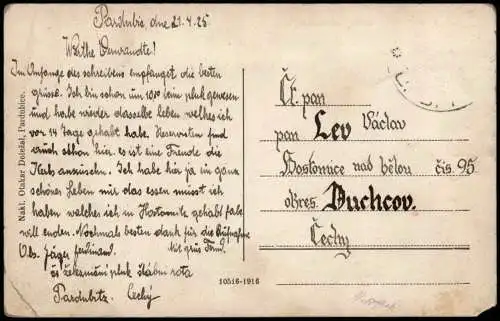 Pardubic, dne 21.4.25
Werthe Verwandte!
Im Anfange des schreibens empfanget die besten
grüsse. Ich bin schon um 10 beim pluk gewesen
und habe wieder dasselbe leben welhes ich
vor 14 Tage gehabt habe. Reservisten sind
auch schon hier, es ist eine Freude die
Kerls ansusehen. Ich habe hir ja ein ganz
schönes Leben nur das essen müsst ich
haben welcher ich in Hostomitz gehabt habe
will enden. Nochmals besten dank für die Aufnahme
Obs. Jäger ferdinand. Mit grüs Ferd.
pluk štábní rota
Pardubitz Čechý
Nakl. Otakar Doležal, Pardubice.
10516-1916
Ct. pan
pan Lev Václav
Hostomice nad bělou čís 95
okres Duchcov.
Čechy